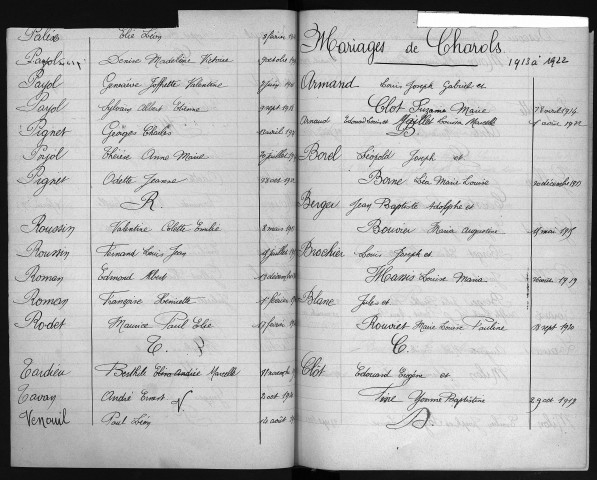 Palix Elie Léon 8 février
Payol Denise Madeleine Victoire 9 octobre
Payol Geneviève Joffrette Valentine
Payol Sylvain Albert Etienne 9 sept
Pignet Georges Charles avril
Payol Thérèse Anne Marie juillet
Pignet Odette Jeanne
R.
Roussin Valentine Colette Emilie 8 mars
Roussin Fernand Louis Jean juillet
Roman Edmond Albert décembre
Roman Françoise Henriette 1er février
Rodet Maurice Paul Elie 17 février
T.
Tardieu Berthile Andrée Marcelle
Tavan André Ernest 2 oct
V
Venouil Paul Léon 14 août
Mariages de Charols
1913 à 1922
Armand Louis Joseph Gabriel et
Clot Suzanne Marie avril 1914
Arnaud Edouard Louis et Maillet Louisa Marcelle 1 août 1922
B
Borel Léopold Joseph et
Borne Léa Marie Louise décembre
Berger Jean Baptiste Adolphe et
Bouvier Maria Augustine mai 1915
Brochier Louis Joseph et
Manis Louise Maria février 1919
Blanc Jules et
Rouvret Marie Louise Pauline sept 1920
C.
Clôt Edouard Eugène et
Yvonne Baptistine 29 oct 1919
D